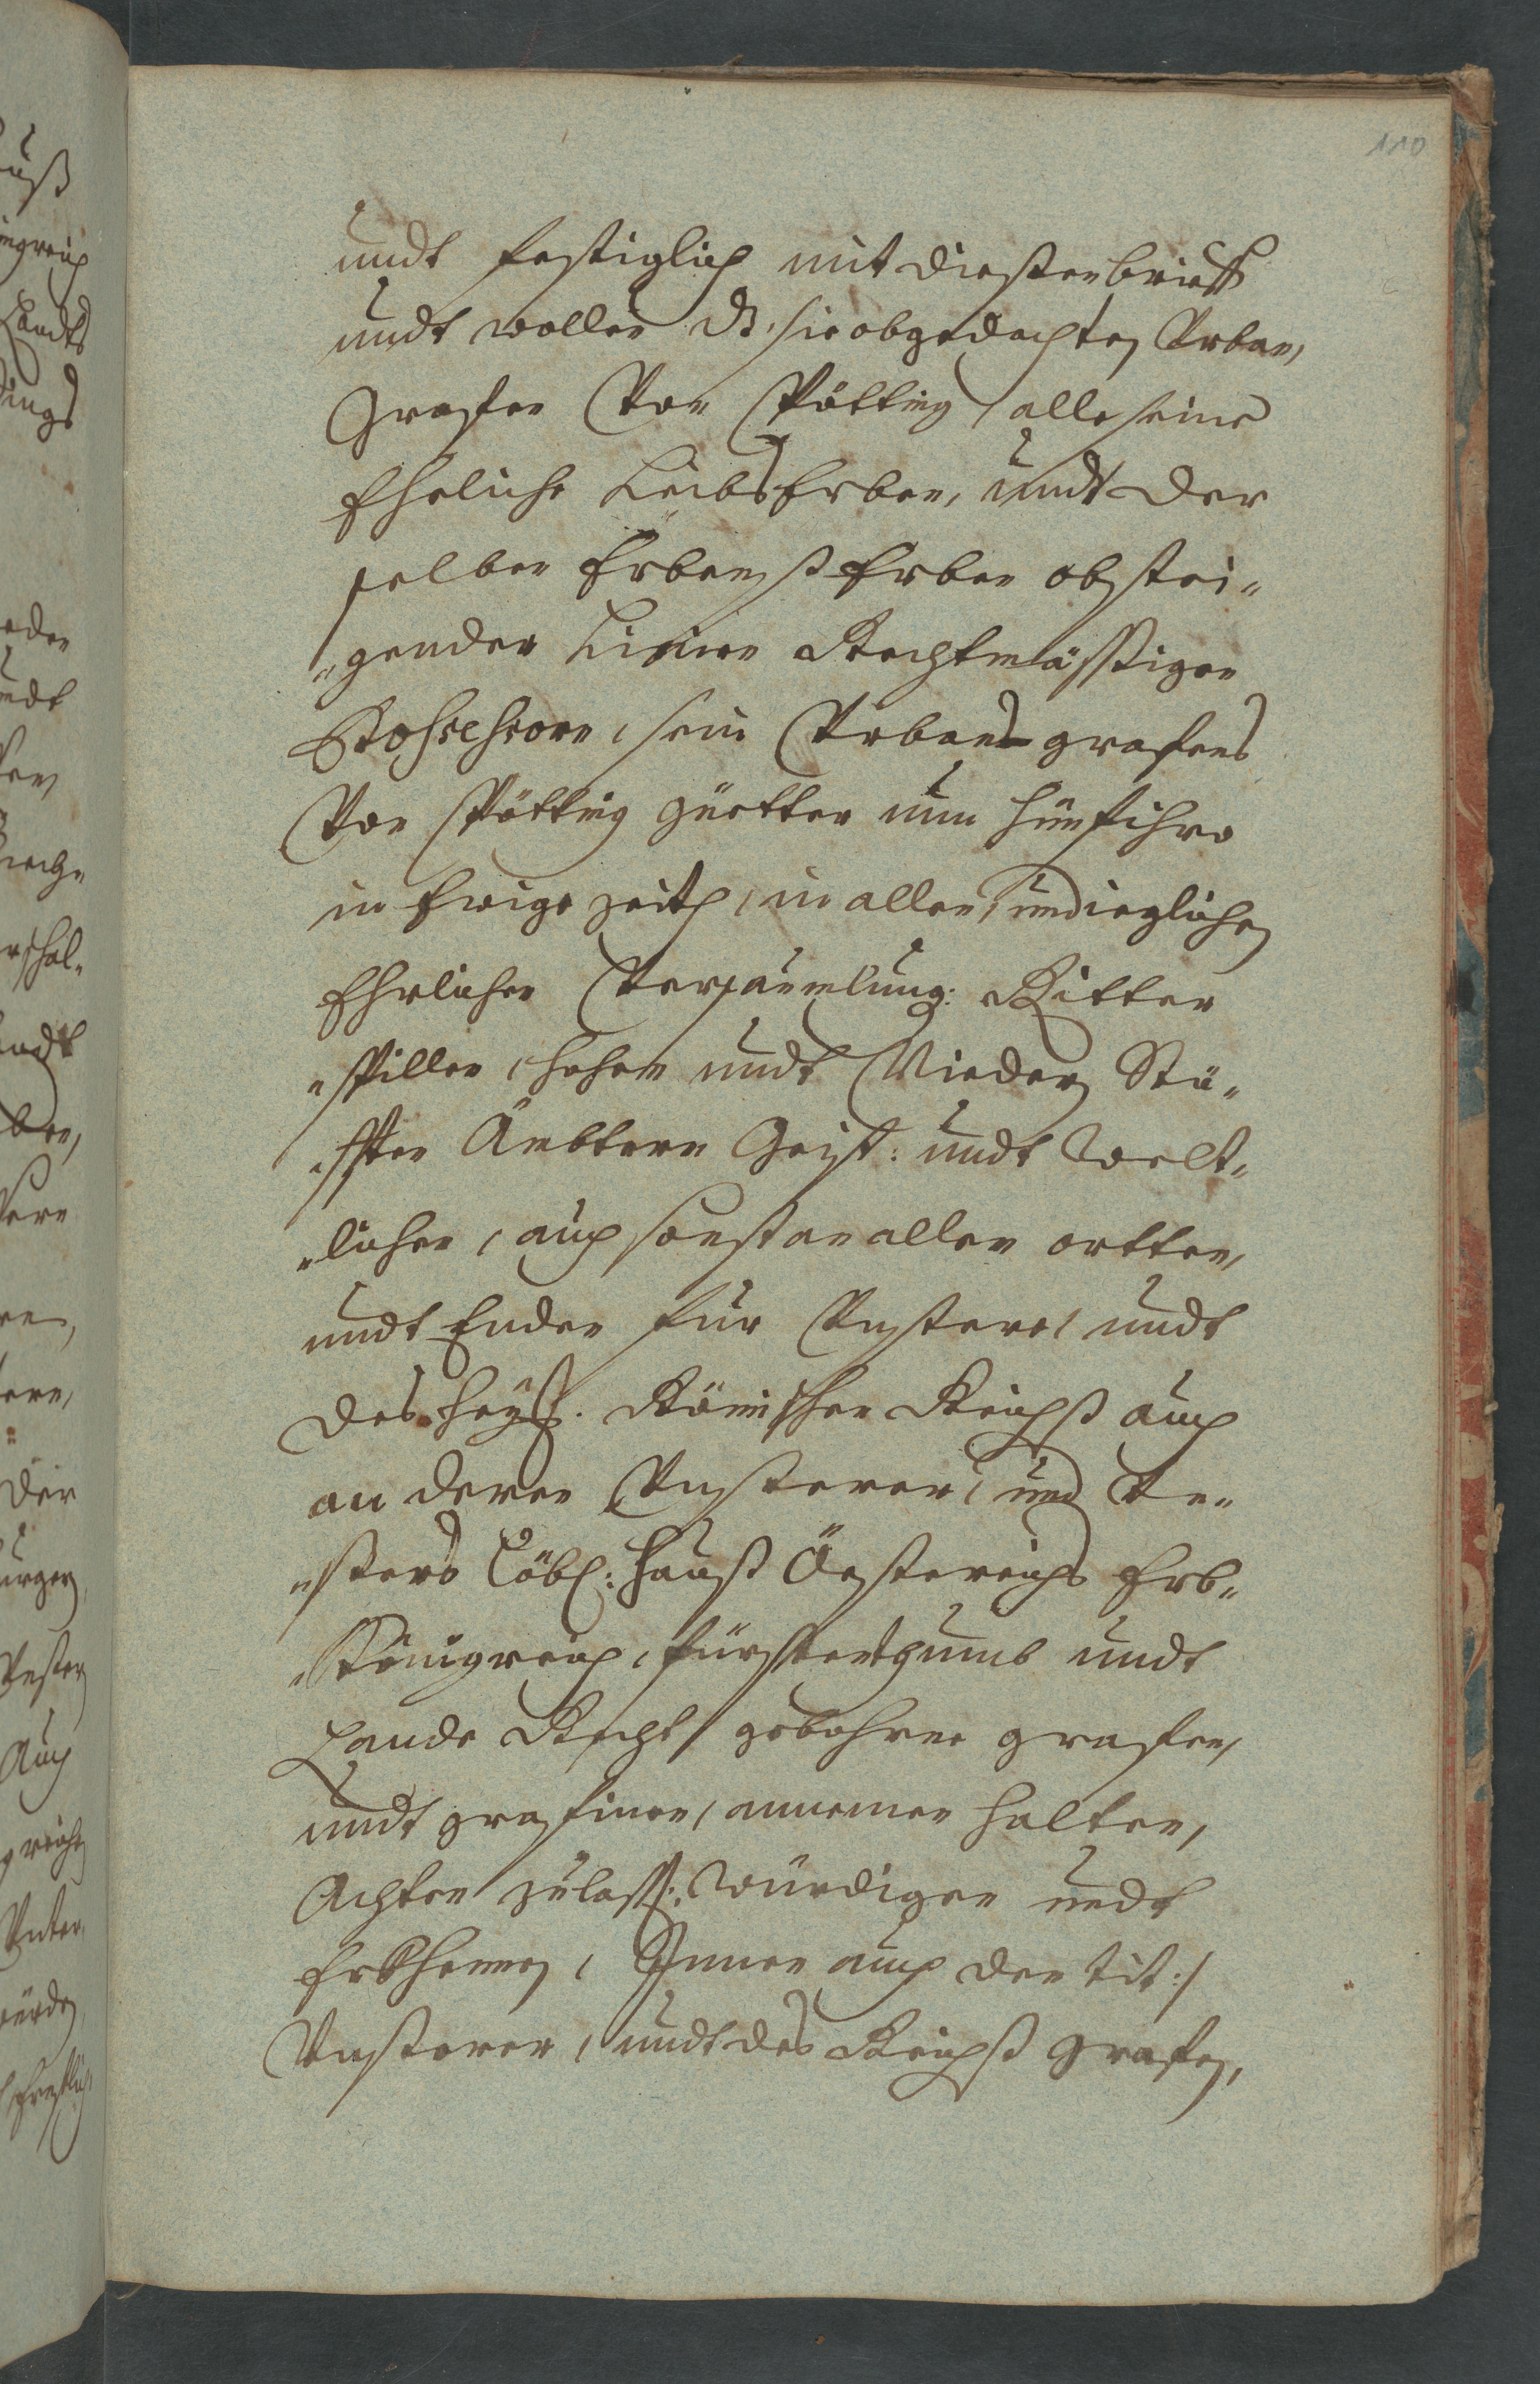 110
undt festiglich mit diesten brieff
undt wollen dz sie obgedachten Vrban,
Grafen Von Pötting alle seine
Eheliche LeibsErben, undt der
selben ErbenßErben abstei„
„gender Linien Rechtmässigen
Possessorn, sein Vrbans grafens
Von Pötting güetter nun hünfihro
in Ewige zeitt, in allen, und ieglichen
Ehrlichen Versaumlung: Ritter
„spillen, hohen undt Niedern Stü„
„fften Ämbtern Geist: undt Welt„
„lichen, auch sonst an allen ortten,
undt Enden für Vnstere, undt
des heyl: Römischen Reichß auch
an deren Vnsterer, und Vn„
„sters Löbl: Hauß Össtereichs Erb„
„Königreich, fürstenthumb undt
Lande Recht gebohrne grafen,
undt grafinen, annemen halten,
Achten zulass: würdigen undt
Erkhennen, Ihnen auch den tit:/
Vnsterer, undt des Reichß grafen,